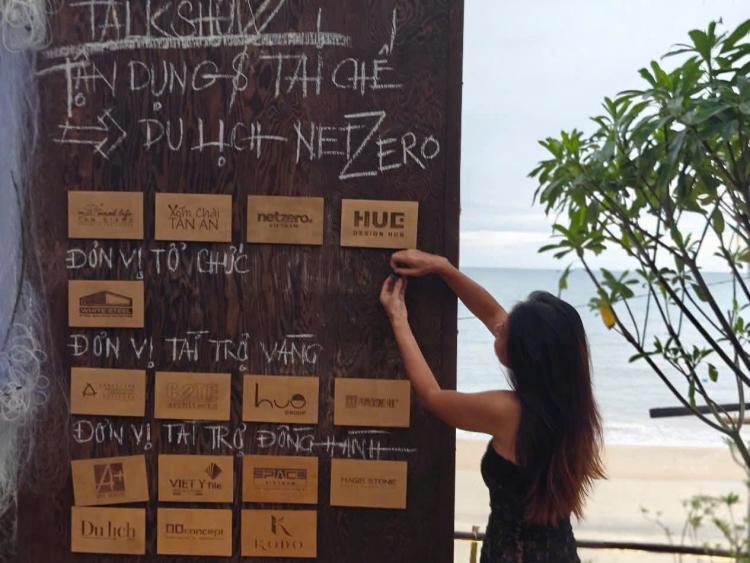 TALKSHOW
TẬN DỤNG & TÁI CHẾ
DU LỊCH NETZERO
Xóm Chài TÂN AN
netzero. VIETNAM
HUE DESIGN HUB
ĐƠN VỊ TỔ CHỨC
WHITE STEEL
ĐƠN VỊ TÀI TRỢ VÀNG
architects
huo GROUP
ĐƠN VỊ TÀI TRỢ ĐỒNG HÀNH
A+
VIET Ý file
SPACE
MAGIE STONE
Du lịch
concept
KODO